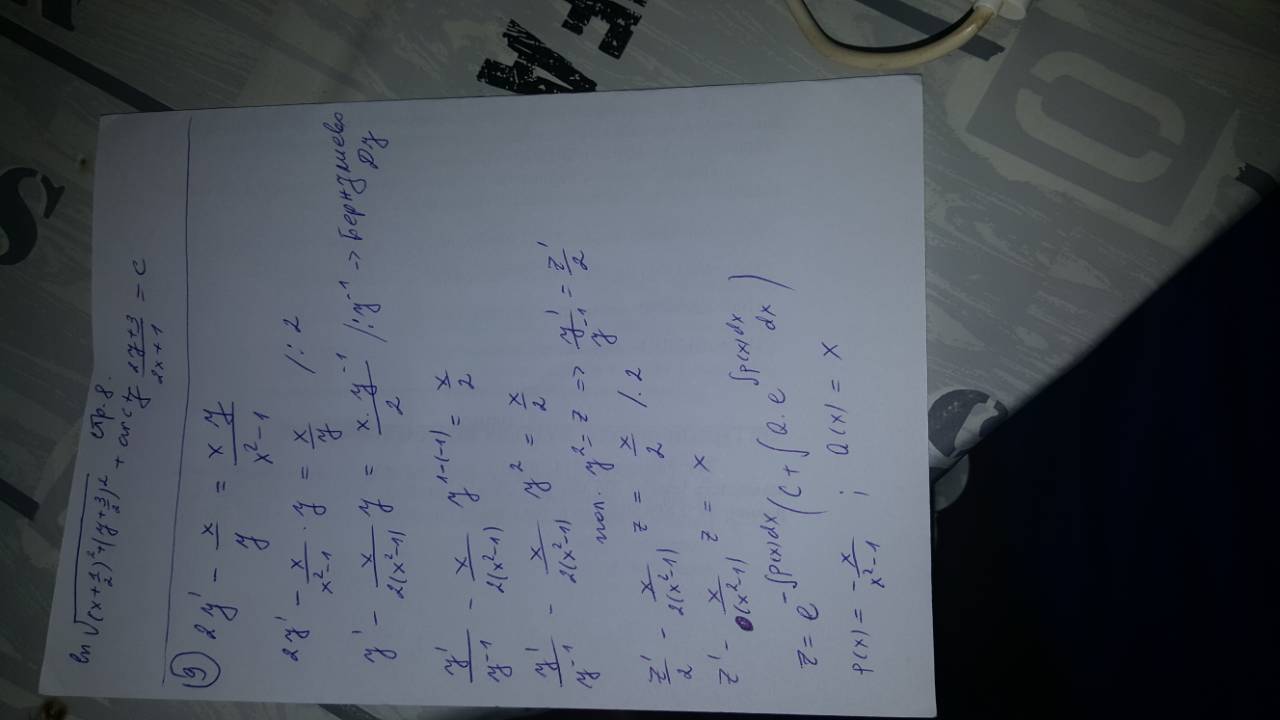 стр. 8.
ln √((x+1/2)²+(y+3/2)²) + arctg (2y+3)/(2x+1) = c
⑨ 2y' − x/y = xy/(x²−1)
2y' − x/(x²−1) · y = x/y /:2
y' − x/(2(x²−1)) y = x·y⁻¹/2 /:y⁻¹ -> Бернулиево ДУ
y'/y⁻¹ − x/(2(x²−1)) y^(1−(−1)) = x/2
y'/y⁻¹ − x/(2(x²−1)) y² = x/2
пол. y² = z => y'/y⁻¹ = z'/2
z'/2 − x/(2(x²−1)) z = x/2 /.2
z' − x/(x²−1) z = x
z = e^(−∫p(x)dx) (C + ∫Q.e^(∫p(x)dx) dx)
p(x) = −x/(x²−1) ; Q(x) = x